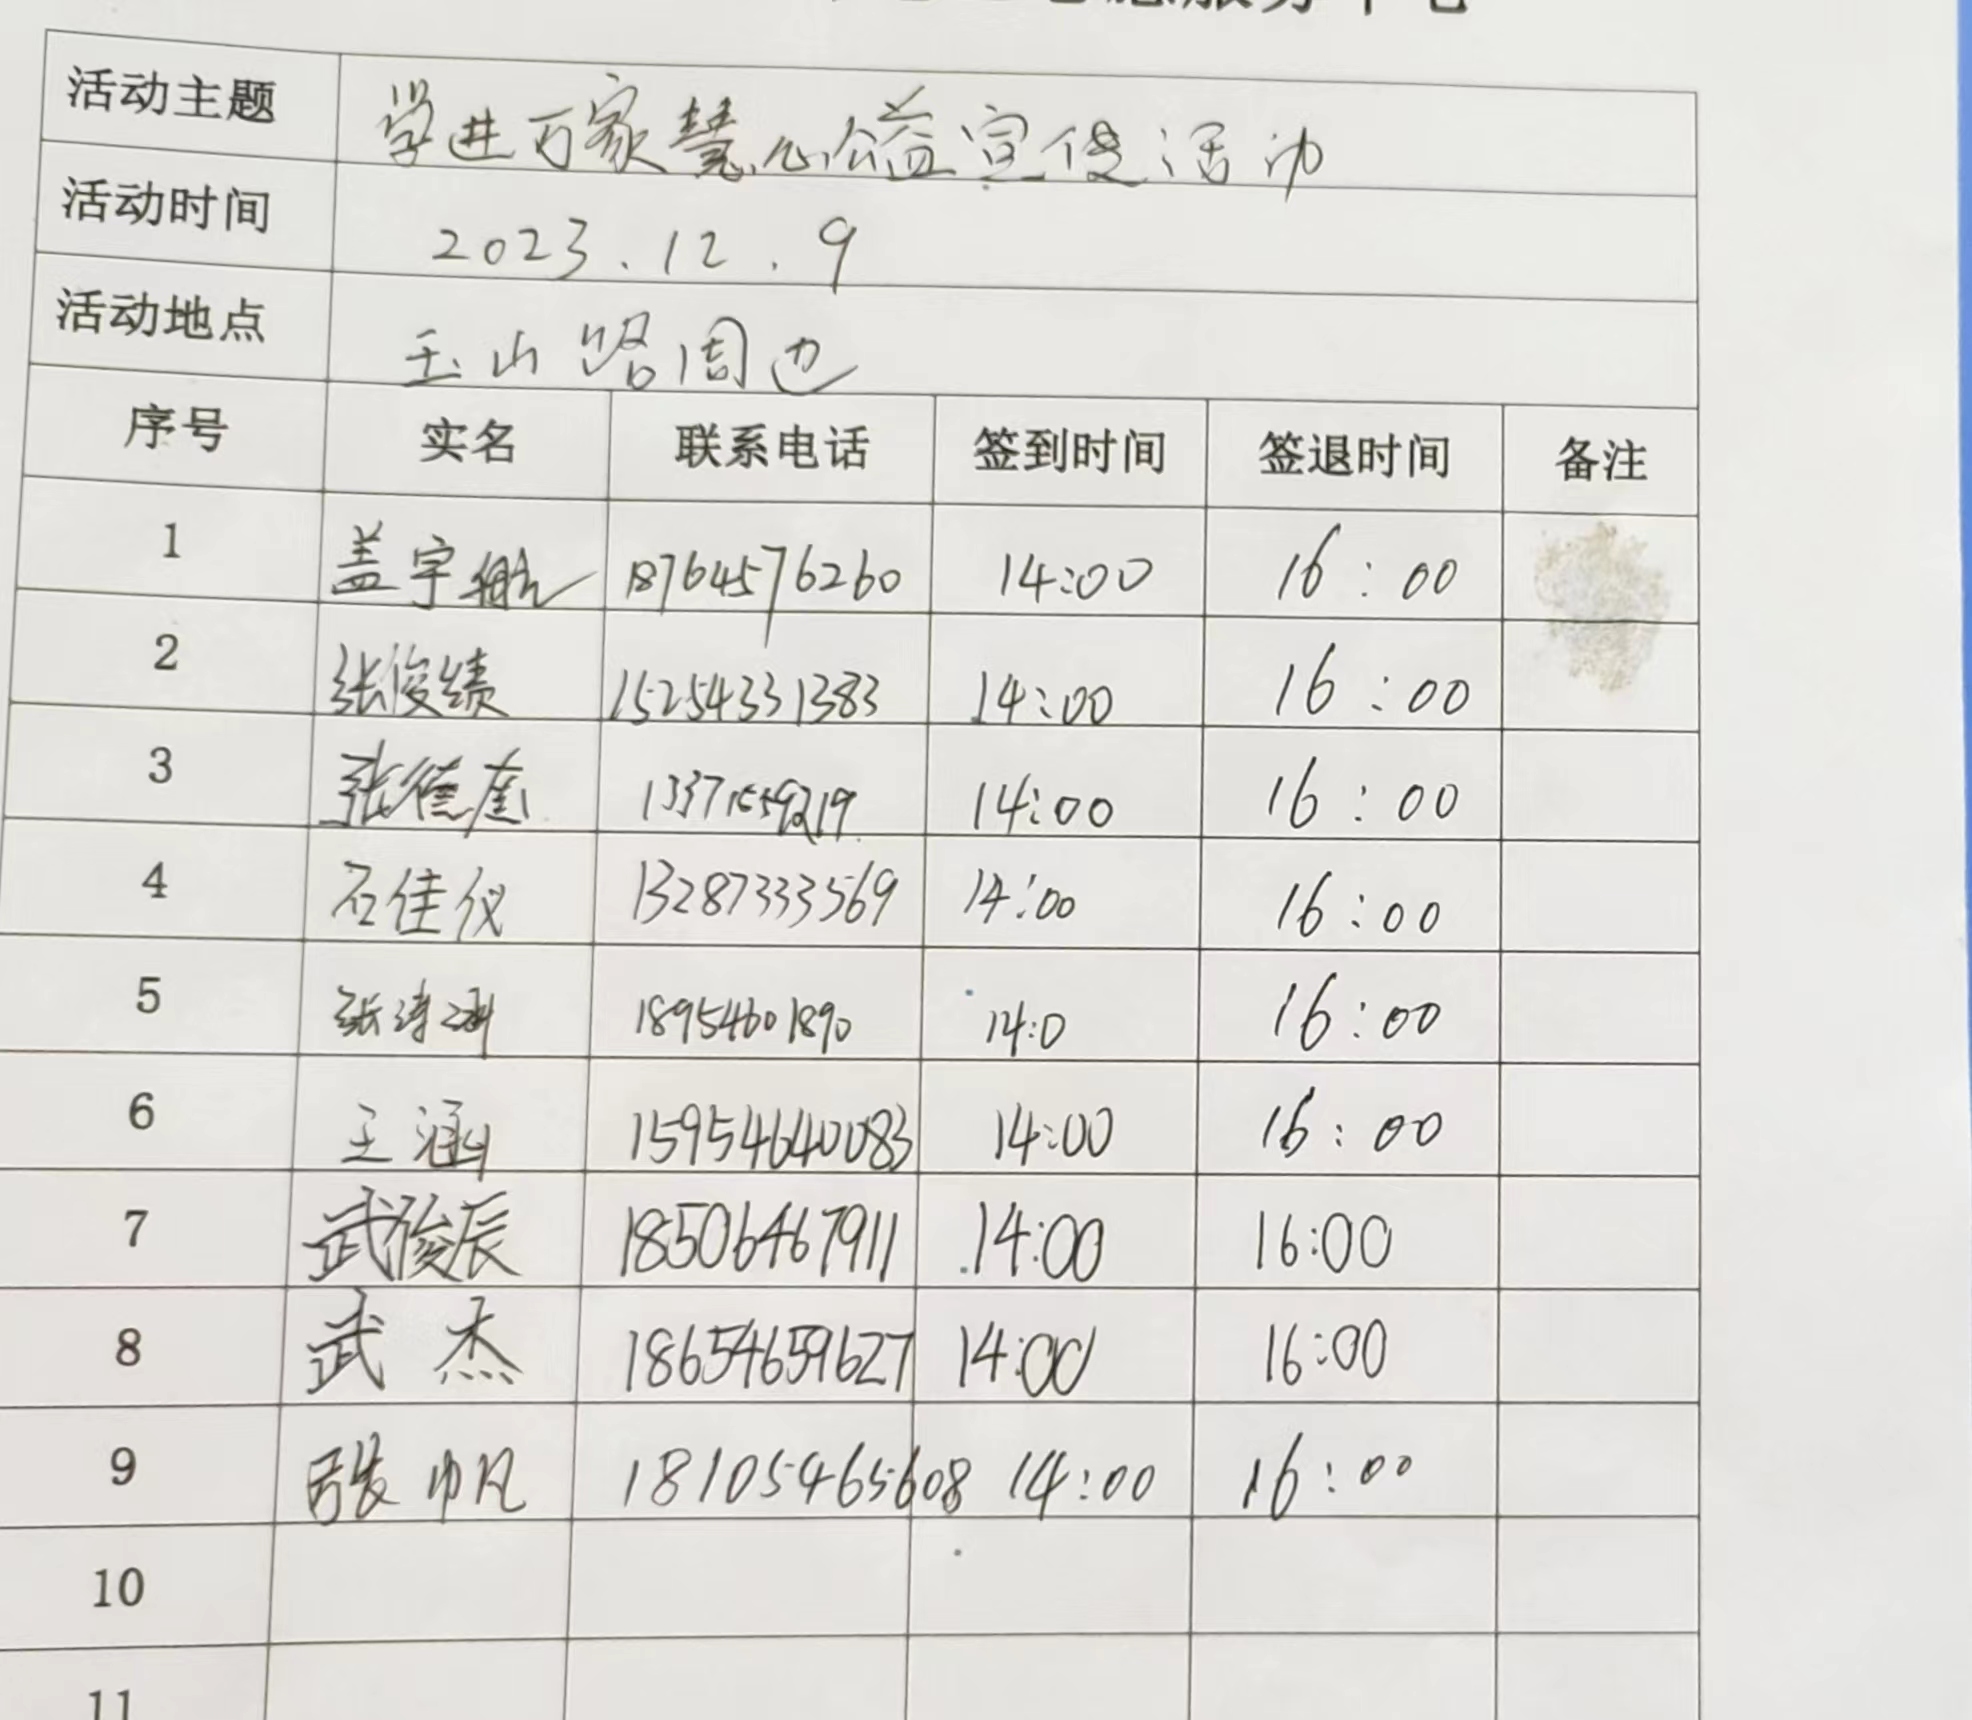 服务中心
活动主题 学进万家慧心公益宣传活动
活动时间 2023.12.9
活动地点 玉山路周边
序号 实名 联系电话 签到时间 签退时间 备注
1 盖宇航 18764576260 14:00 16:00
2 张俊绩 15254331383 14:00 16:00
3 张德奎 14:00 16:00
4 石佳仪 13287333569 14:00 16:00
5 18954601890 14:0 16:00
6 王涵 15954640083 14:00 16:00
7 武俊辰 18506467911 14:00 16:00
8 武杰 18654659627 14:00 16:00
9 张帅凡 18105465608 14:00 16:00
10
11